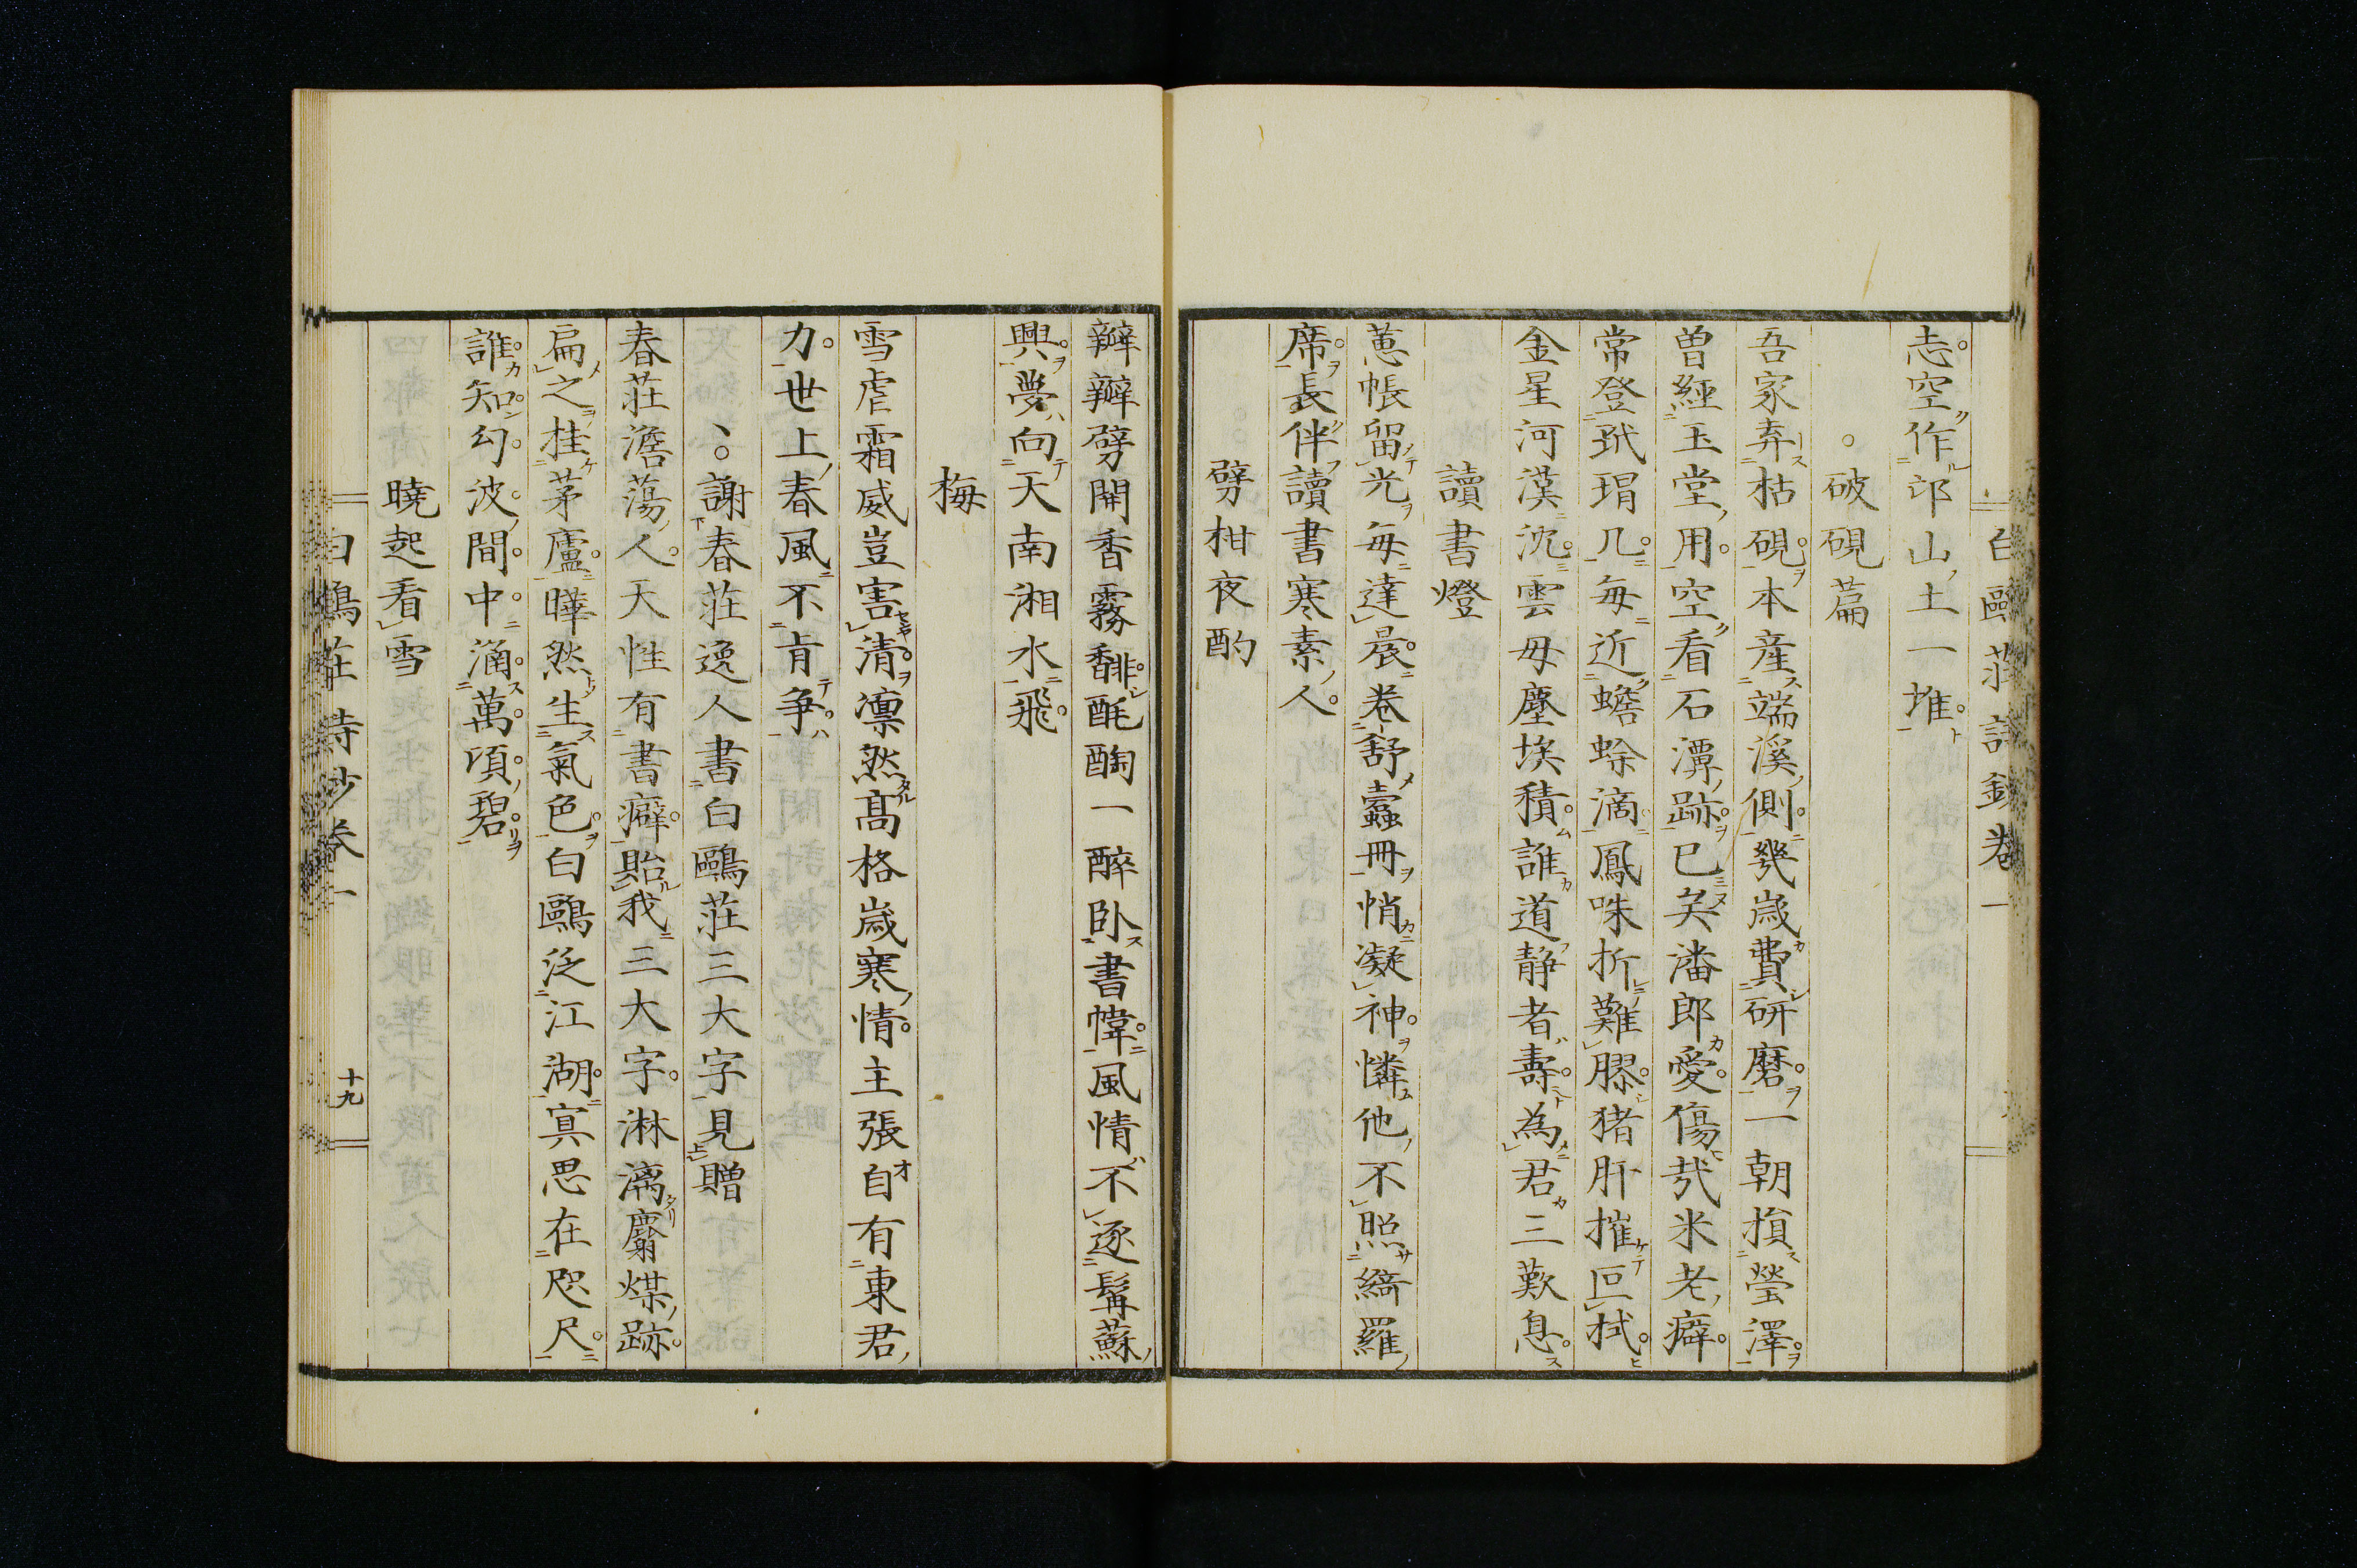 白鷗莊詩鈔卷一
志空作邙山土一堆
破硯篇
吾家弃枯硯本產端溪側幾歲費研磨一朝損瑩澤
曾經玉堂用空看石潭跡已矣潘郎愛傷哉米老癖
常登玳瑁几每近蟾蜍滴鳳咮折難膠豬肝摧叵拭
金星河漢沈雲母塵埃積誰道靜者壽為君三歎息
讀書燈
蕙帳留光每達晨卷舒蠹冊悄凝神憐他不照綺羅
席長伴讀書寒素人
劈柑夜酌
瓣瓣劈開香霧馡酕醄一醉臥書幃風情不逐髯蘇
興夢向天南湘水飛
梅
雪虐霜威豈害清凛然高格歲寒情主張自有東君
力世上春風不肯爭
謝春莊逸人書白鷗莊三大字見贈
春莊澹蕩人天性有書癖貽我三大字淋漓麝煤跡
扁之挂茅廬曄然生氣色白鷗泛江湖寘思在咫尺
誰知幻波間中涵萬頃碧
曉起看雪
白鷗莊詩鈔卷一
十九